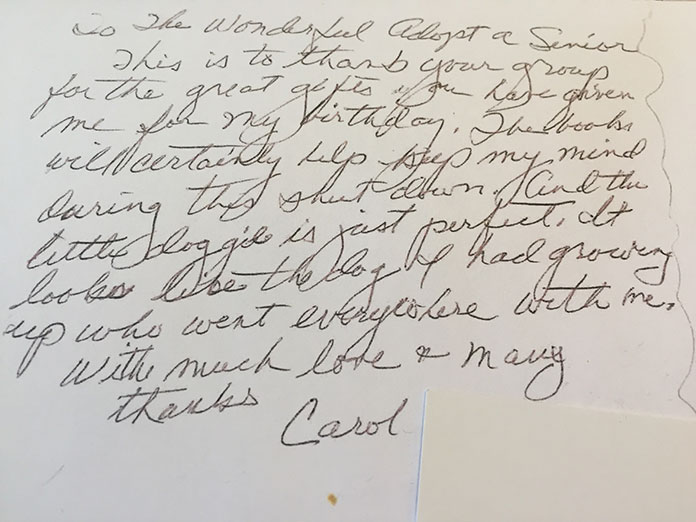 To The Wonderful Adopt a Senior
This is to thank your group
for the great gifts you have given
me for my birthday. The books
will certainly help keep my mind
during this shut down. And the
little doggie is just perfect. It
looks like the dog I had growing
up who went everywhere with me.
With much love & many
thanks
Carol